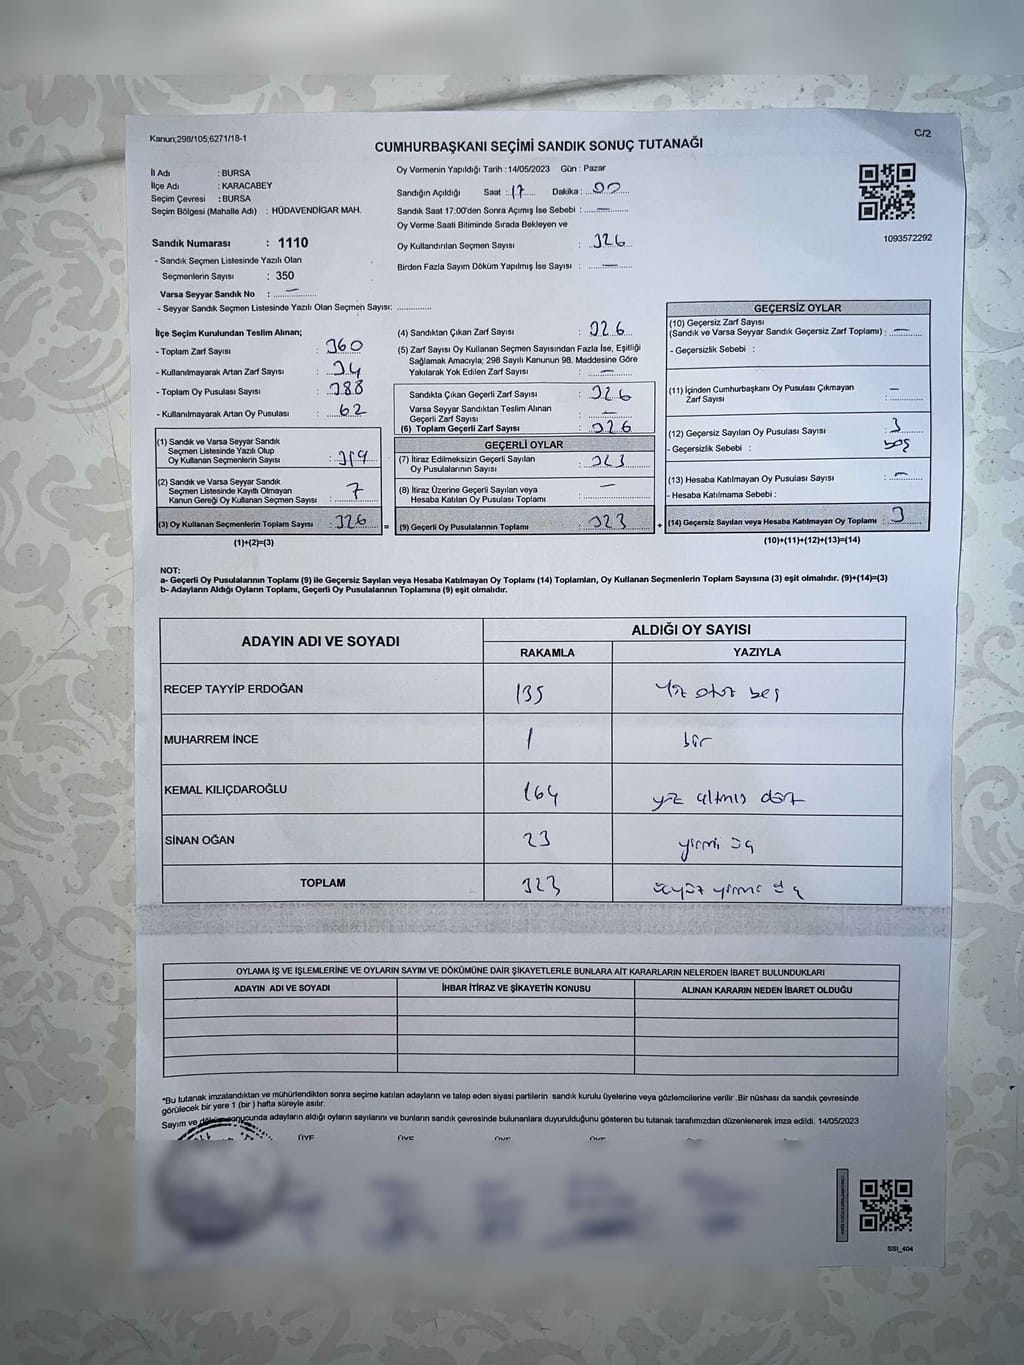 Kanun;298/105,6271/18-1
C/2
CUMHURBAŞKANI SEÇİMİ SANDIK SONUÇ TUTANAĞI
İl Adı : BURSA
İlçe Adı : KARACABEY
Seçim Çevresi : BURSA
Seçim Bölgesi (Mahalle Adı) : HÜDAVENDİGAR MAH.
Sandık Numarası : 1110
- Sandık Seçmen Listesinde Yazılı Olan
Seçmenlerin Sayısı : 350
Varsa Seyyar Sandık No : —
- Seyyar Sandık Seçmen Listesinde Yazılı Olan Seçmen Sayısı: ............
Oy Vermenin Yapıldığı Tarih :14/05/2023 Gün : Pazar
Sandığın Açıldığı Saat : 17 Dakika : 00
Sandık Saat 17:00'den Sonra Açımış İse Sebebi : —
Oy Verme Saati Bitiminde Sırada Bekleyen ve
Oy Kullandırılan Seçmen Sayısı : 326
Birden Fazla Sayım Döküm Yapılmış İse Sayısı : —
1093572292
İlçe Seçim Kurulundan Teslim Alınan;
- Toplam Zarf Sayısı : 360
- Kullanılmayarak Artan Zarf Sayısı : 34
- Toplam Oy Pusulası Sayısı : 388
- Kullanılmayarak Artan Oy Pusulası : 62
(1) Sandık ve Varsa Seyyar Sandık
Seçmen Listesinde Yazılı Olup
Oy Kullanan Seçmenlerin Sayısı : 319
(2) Sandık ve Varsa Seyyar Sandık
Seçmen Listesinde Kayıtlı Olmayan
Kanun Gereği Oy Kullanan Seçmen Sayısı : 7
(3) Oy Kullanan Seçmenlerin Toplam Sayısı : 326
(1)+(2)=(3)
(4) Sandıktan Çıkan Zarf Sayısı : 326
(5) Zarf Sayısı Oy Kullanan Seçmen Sayısından Fazla İse, Eşitliği
Sağlamak Amacıyla; 298 Sayılı Kanunun 98. Maddesine Göre
Yakılarak Yok Edilen Zarf Sayısı : —
Sandıkta Çıkan Geçerli Zarf Sayısı : 326
Varsa Seyyar Sandıktan Teslim Alınan
Geçerli Zarf Sayısı : —
(6) Toplam Geçerli Zarf Sayısı : 326
GEÇERLİ OYLAR
(7) İtiraz Edilmeksizin Geçerli Sayılan
Oy Pusulalarının Sayısı : 323
(8) İtiraz Üzerine Geçerli Sayılan veya
Hesaba Katılan Oy Pusulası Toplamı : —
= (9) Geçerli Oy Pusulalarının Toplamı : 323
GEÇERSİZ OYLAR
(10) Geçersiz Zarf Sayısı
(Sandık ve Varsa Seyyar Sandık Geçersiz Zarf Toplamı) : —
- Geçersizlik Sebebi :
(11) İçinden Cumhurbaşkanı Oy Pusulası Çıkmayan
Zarf Sayısı : —
(12) Geçersiz Sayılan Oy Pusulası Sayısı : 3
- Geçersizlik Sebebi : boş
(13) Hesaba Katılmayan Oy Pusulası Sayısı : —
- Hesaba Katılmama Sebebi :
+ (14) Geçersiz Sayılan veya Hesaba Katılmayan Oy Toplamı : 3
(10)+(11)+(12)+(13)=(14)
NOT:
a- Geçerli Oy Pusulalarının Toplamı (9) ile Geçersiz Sayılan veya Hesaba Katılmayan Oy Toplamı (14) Toplamları, Oy Kullanan Seçmenlerin Toplam Sayısına (3) eşit olmalıdır. (9)+(14)=(3)
b- Adayların Aldığı Oyların Toplamı, Geçerli Oy Pusulalarının Toplamına (9) eşit olmalıdır.
ADAYIN ADI VE SOYADI ALDIĞI OY SAYISI
RAKAMLA YAZIYLA
RECEP TAYYİP ERDOĞAN 135 yüz otuz beş
MUHARREM İNCE 1 bir
KEMAL KILIÇDAROĞLU 164 yüz altmış dört
SİNAN OĞAN 23 yirmi üç
TOPLAM 323 üçyüz yirmi üç
OYLAMA İŞ VE İŞLEMLERİNE VE OYLARIN SAYIM VE DÖKÜMÜNE DAİR ŞİKAYETLERLE BUNLARA AİT KARARLARIN NELERDEN İBARET BULUNDUKLARI
ADAYIN ADI VE SOYADI İHBAR İTİRAZ VE ŞİKAYETİN KONUSU ALINAN KARARIN NEDEN İBARET OLDUĞU
*Bu tutanak imzalandıktan ve mühürlendikten sonra seçime katılan adayların ve talep eden siyasi partilerin sandık kurulu üyelerine veya gözlemcilerine verilir .Bir nüshası da sandık çevresinde
görülecek bir yere 1 (bir ) hafta süreyle asılır.
Sayım ve döküm sonucunda adayların aldığı oyların sayılarını ve bunların sandık çevresinde bulunanlara duyurulduğunu gösteren bu tutanak tarafımızdan düzenlenerek imza edildi. 14/05/2023
ÜYE ÜYE ÜYE ÜYE
SSI_404